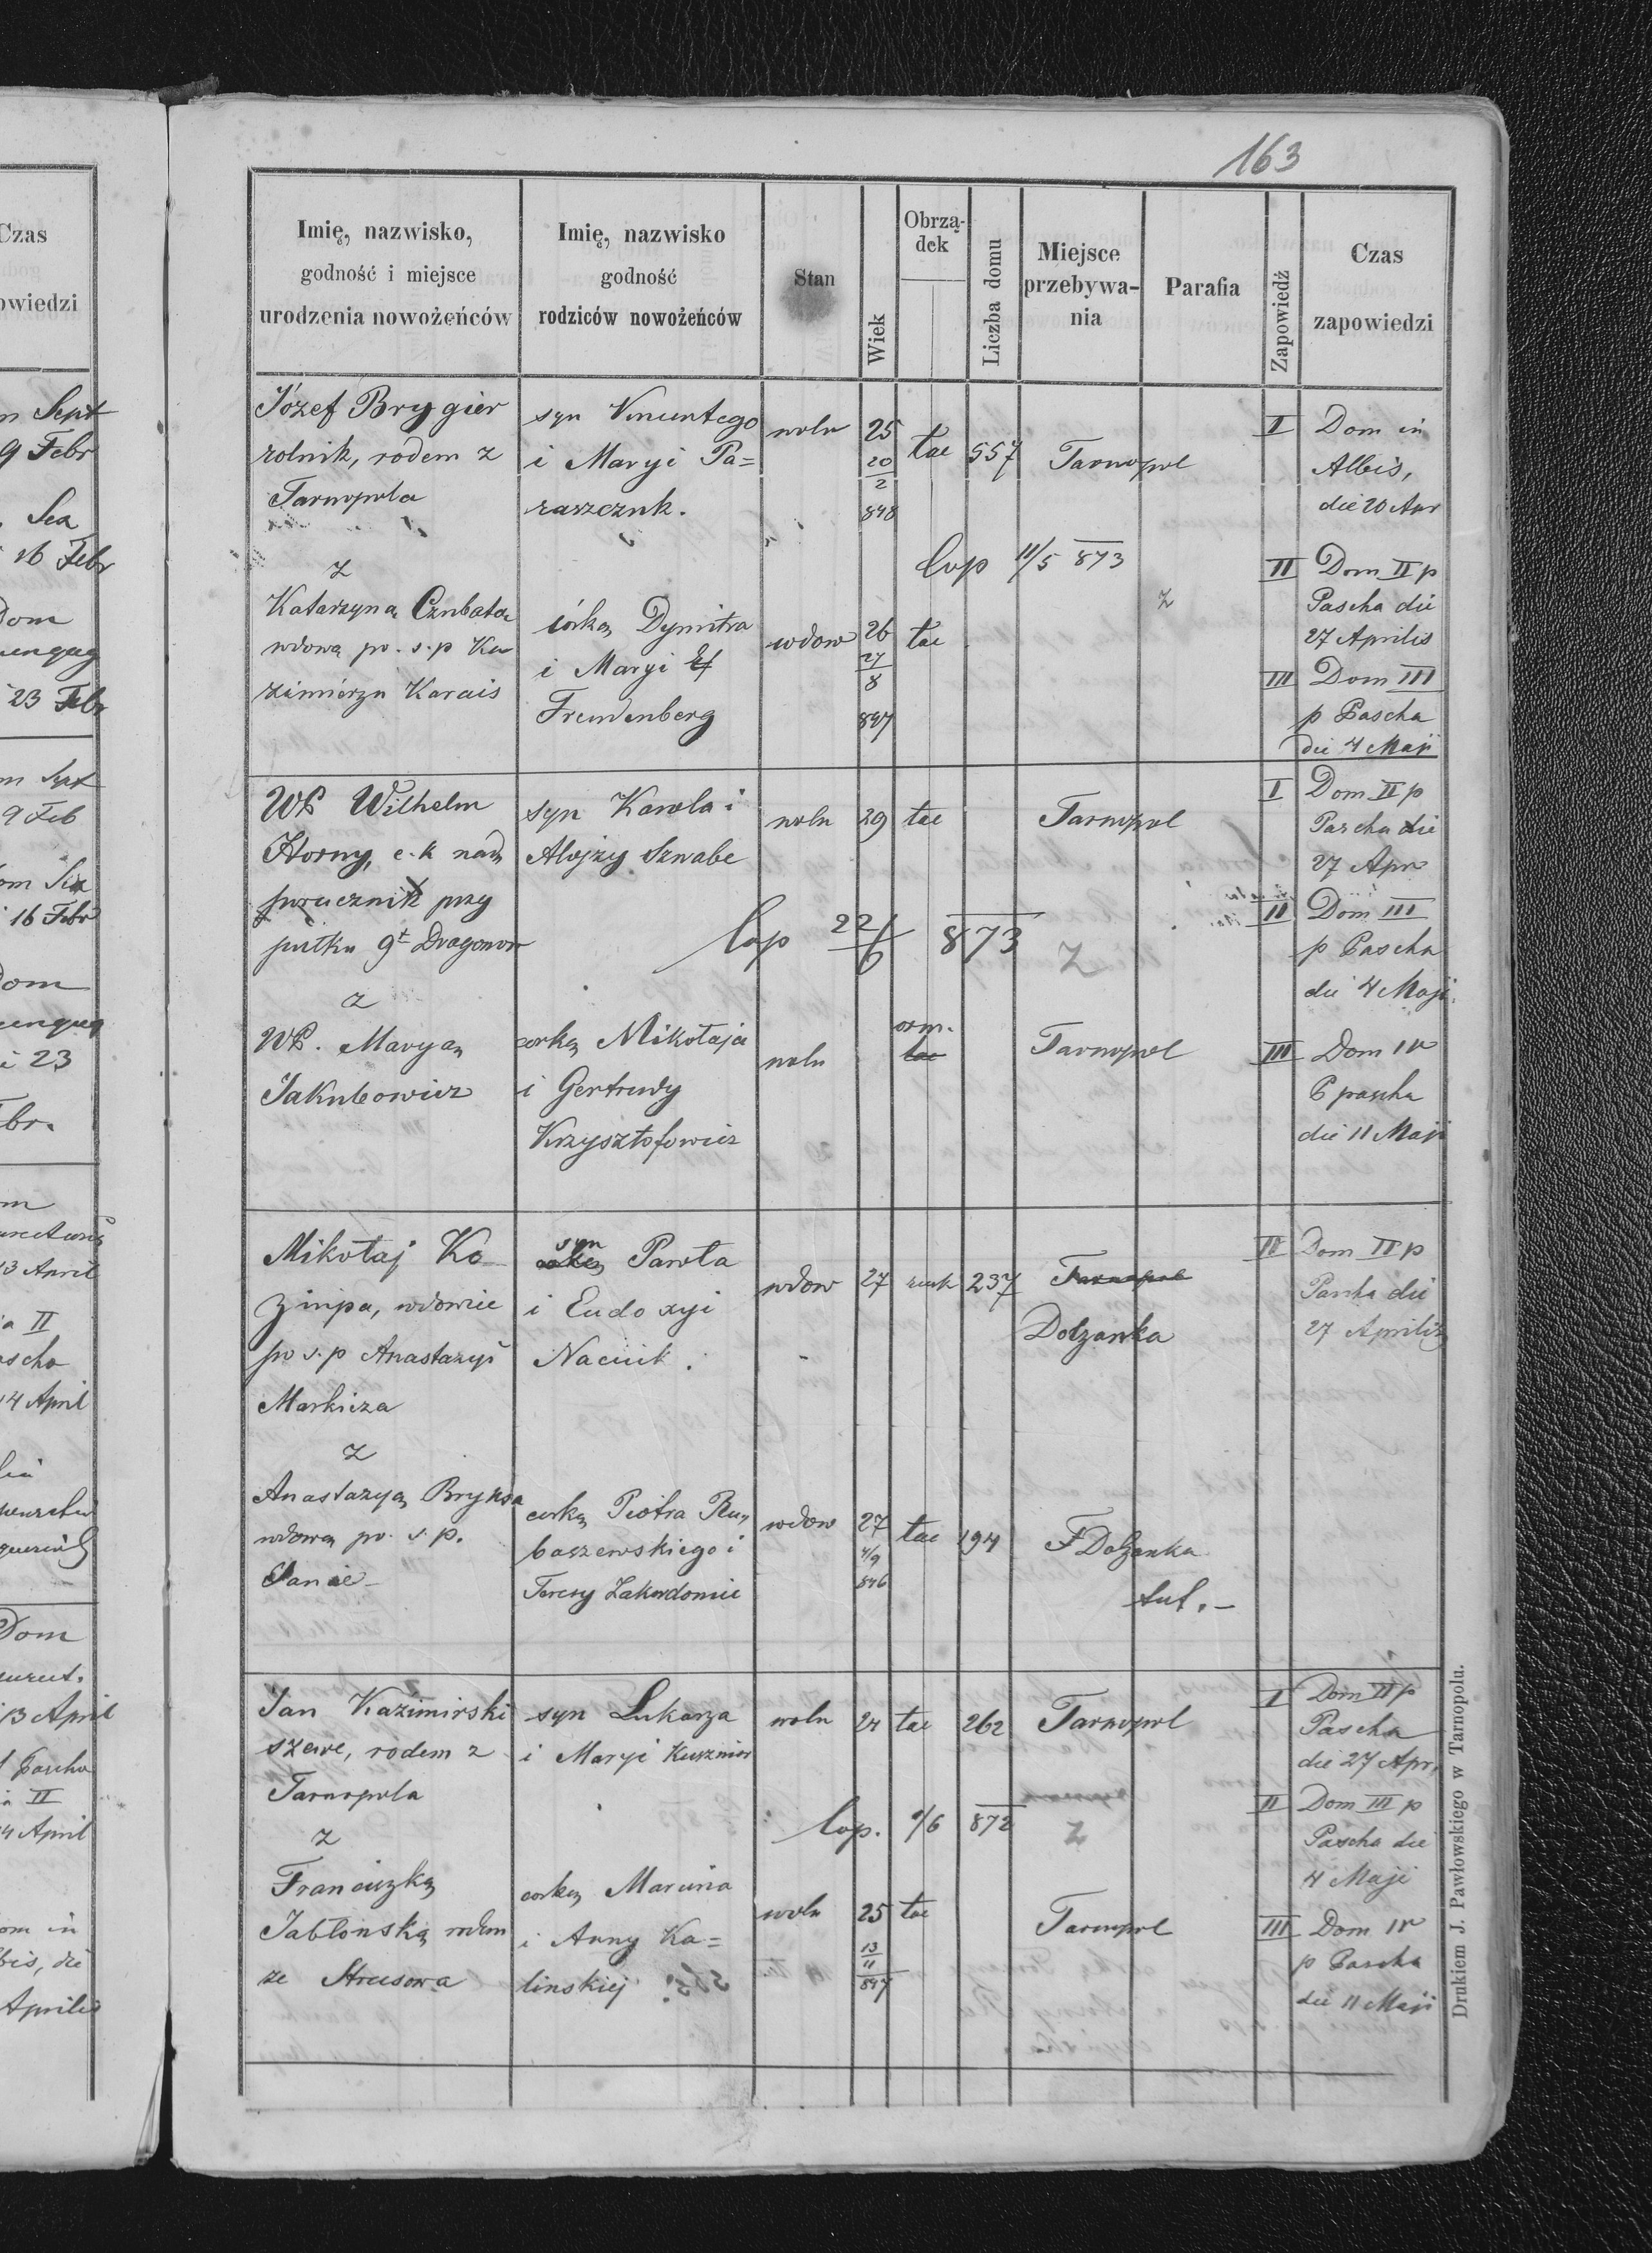 163
Imię, nazwisko,
godność i miejsce
urodzenia nowożeńców
Imię, nazwisko
godność
rodziców nowożeńców
Stan
Wiek
Obrzą-
dek
Liczba domu
Miejsce
przebywa-
nia
Parafia
Zapowiedź
Czas
zapowiedzi
Józef Brygier
rolnik, rodem z
Tarnopola
syn Vincentego
i Maryi Pa=
raszczuk.
woln
25
20
2
848
łac
557
Tarnopol
I Dom in
Albis,
die 20 Apr
Cop 11/5 873
II Dom II p
Pascha die
27 Aprilis
III Dom III
p Pascha
die 4 Maji
z
Katarzyną Czubata
wdową po s.p Ka
zimierzu Karais
córką Dymitra
i Maryi
Freudenberg
wdow
26
27
8
847
łac
z
WP Wilhelm
Horny, c.k nad
porucznik przy
pułku 9t Dragonow
syn Karola i
Alojzy Sznabe
woln
29
łac
Tarnopol
I Dom II p
Pascha die
27 Apr
II Dom III
p Pascha
die 4 Maji
Cop 22/6 873
z
z
WP. Maryą
Jakubowicz
corką Mikołaja
i Gertrudy
Krzysztofowicz
woln
orm.
łac
Tarnopol
III Dom IV
P pascha
die 11 Maji
Mikołaj Ko
zinpa, wdowiec
po s.p Anastazyi
Markiza
syn
Pawła
i Eudoxyi
Naciuk.
wdow
27
237
Tarnopol
Dolzanka
Dom II p
Pascha die
27 Aprilis
z
Anastazyą Bryksa
wdową po s.p.
corką Piotra Ru,
baszewskiego i
Teresy Zakordomie
wdow
27
4/9
846
łac
194
Dolzanka
Jan Kazimirski
szewc, rodem z
Tarnopola
syn Łukasza
i Maryi Kusznior
woln
24
łac
262
Tarnopol
I Dom II p
Pascha
die 27 Apr,
II Dom III p
Pascha die
4 Maji
Cop. 1/6 872
z
z
Franciszką
Jabłonską rodem
ze Strusowa
corką Marcina
i Anny Ka=
linskiej
woln
25
13
11
847
łac
Tarnopol
III Dom IV
p Pascha
die 11 Maji
Drukiem J. Pawłowskiego w Tarnopolu.